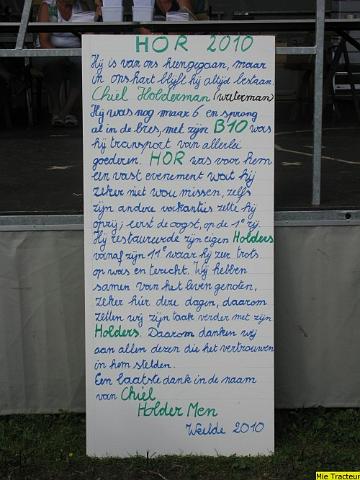 HOR 2010
Hij is van ons heengegaan, maar
in ons hart blijft hij altijd bestaan.
Chiel Holderman (waterman)
Hij was nog maar 6 en sprong
al in de bres, met zijn B10 was
hij transport van allerlei
goederen. HOR was voor hem
een vast evenement wat hij
zeker niet wou missen, zelfs
zijn andere vakanties zette hij
opzij; eerst de oogst, op de 1e rij.
Hij restaureerde zijn eigen Holders
vanaf zijn 11e waar hij zeer trots
op was en terecht. Wij hebben
samen van het leven genoten,
zeker hier deze dagen, daarom
zetten wij zijn taak verder met zijn
Holders. Daarom danken wij
aan allen dezen die het vertrouwen
in hem stelden.
Een laatste dank in de naam
van Chiel
Holder Men
Weelde 2010
Mie Tracteur